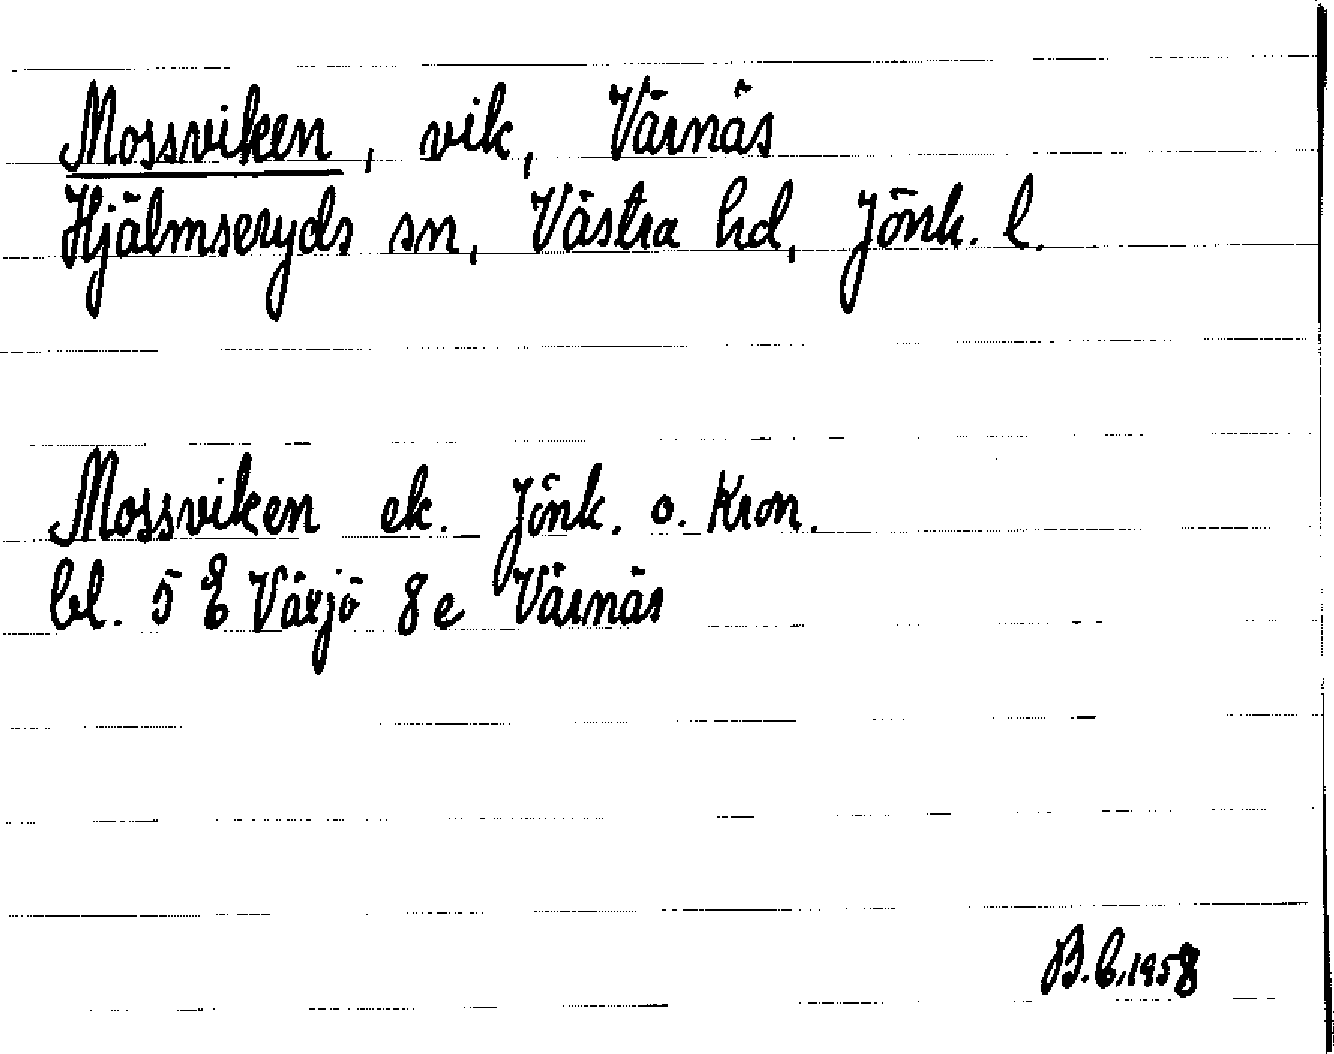 Mossviken, vik, Värnäs
Hjälmseryds sn, Västra hd, Jönk. l.
Mossviken ek. Jönk. o. Kron.
bl. 5 E Växjö 8e Värnäs
B.C. 1958